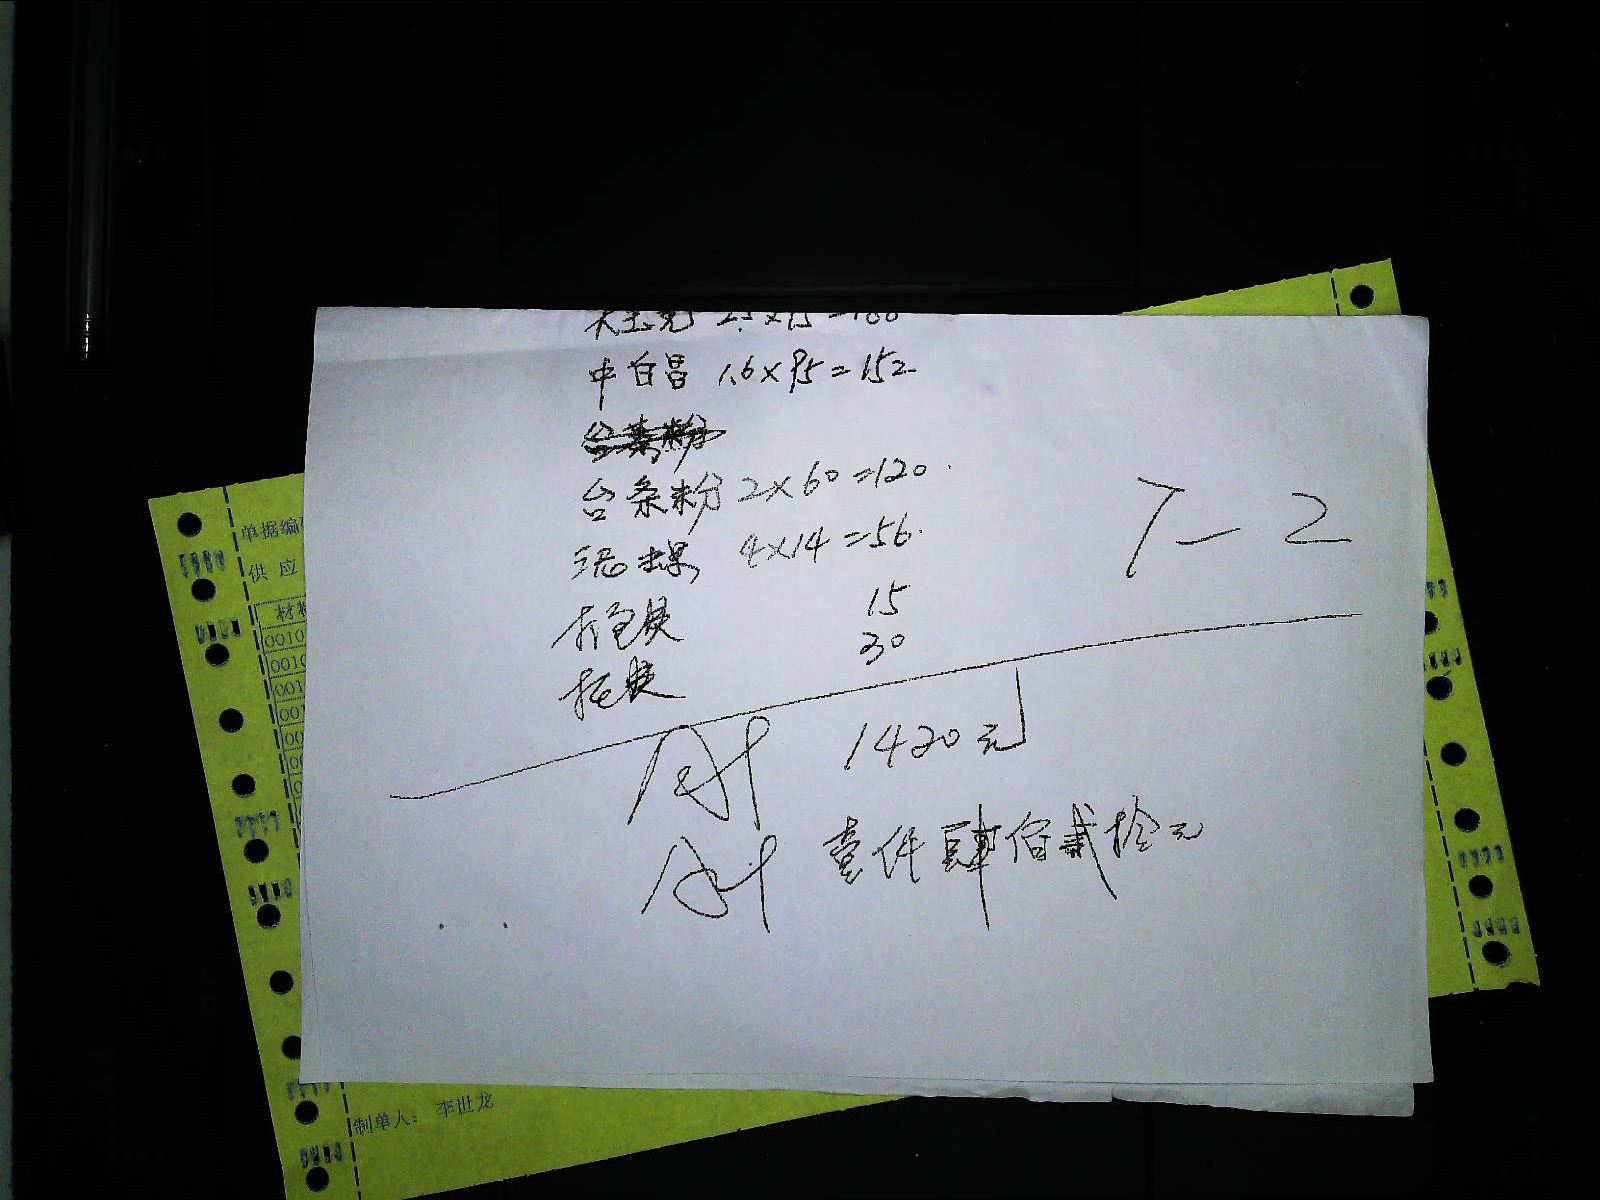 中白昌 1.6×95=152
台条粉 2×60=120
4×14=56
打包费 15
托费 30
7-2
合计 1420元
合计 壹仟肆佰贰拾元
单据编
供应
材料
0010
0010
001
001
00
制单人: 李世龙